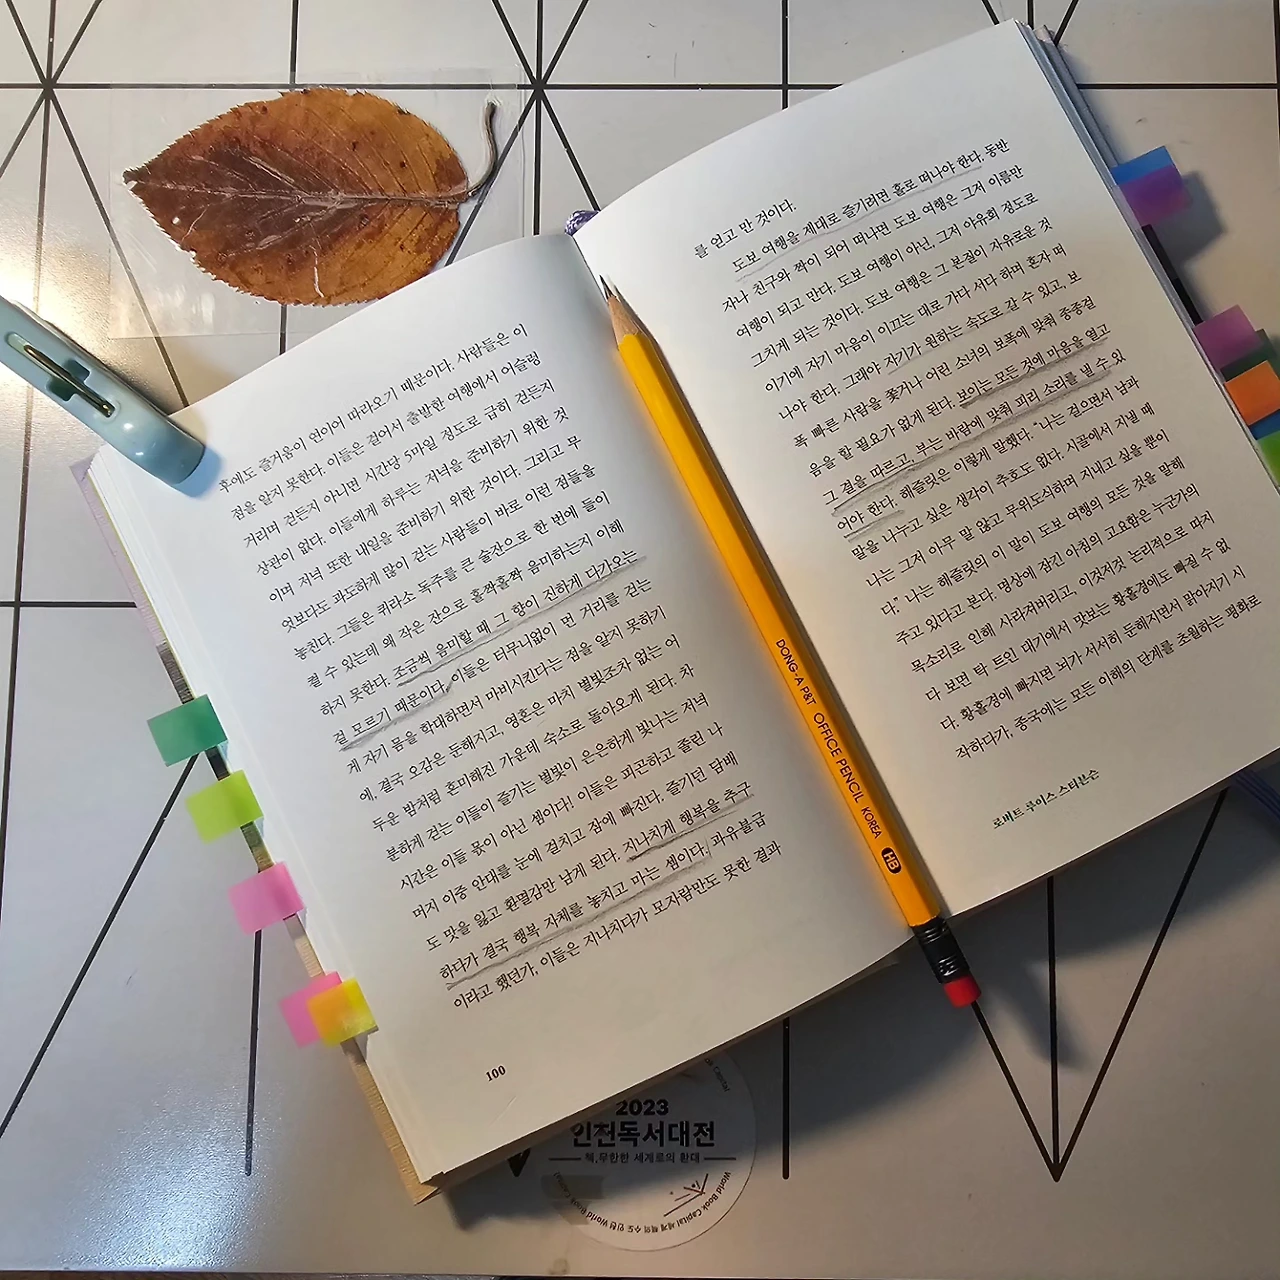 후에도 즐거움이 연이어 따라오기 때문이다. 사람들은 이
점을 알지 못한다. 이들은 걸어서 출발한 여행에서 어슬렁
거리며 걷든지 아니면 시간당 5마일 정도로 급히 걷든지
상관이 없다. 이들에게 하루는 저녁을 준비하기 위한 것
이며 저녁 또한 내일을 준비하기 위한 것이다. 그리고 무
엇보다도 과도하게 많이 걷는 사람들이 바로 이런 점들을
놓친다. 그들은 퀴라소 독주를 큰 술잔으로 한 번에 들이
켤 수 있는데 왜 작은 잔으로 홀짝홀짝 음미하는지 이해
하지 못한다. 조금씩 음미할 때 그 향이 진하게 다가오는
걸 모르기 때문이다. 이들은 터무니없이 먼 거리를 걷는
게 자기 몸을 학대하면서 마비시킨다는 점을 알지 못하기
에, 결국 오감은 둔해지고, 영혼은 마치 별빛조차 없는 어
두운 밤처럼 혼미해진 가운데 숙소로 돌아오게 된다. 차
분하게 걷는 이들이 즐기는 별빛이 은은하게 빛나는 저녁
시간은 이들 몫이 아닌 셈이다! 이들은 피곤하고 졸린 나
머지 이중 안대를 눈에 걸치고 잠에 빠진다. 즐기던 담배
도 맛을 잃고 환멸감만 남게 된다. 지나치게 행복을 추구
하다가 결국 행복 자체를 놓치고 마는 셈이다. 과유불급
이라고 했던가, 이들은 지나치다가 모자람만도 못한 결과
100
를 얻고 만 것이다.
도보 여행을 제대로 즐기려면 홀로 떠나야 한다. 동반
자나 친구와 짝이 되어 떠나면 도보 여행은 그저 이름만
여행이 되고 만다. 도보 여행이 아닌, 그저 야유회 정도로
그치게 되는 것이다. 도보 여행은 그 본질이 자유로운 것
이기에 자기 마음이 이끄는 대로 가다 서다 하며 혼자 떠
나야 한다. 그래야 자기가 원하는 속도로 갈 수 있고, 보
폭 빠른 사람을 쫓거나 어린 소녀의 보폭에 맞춰 종종걸
음을 할 필요가 없게 된다. 보이는 모든 것에 마음을 열고
그 결을 따르고, 부는 바람에 맞춰 피리 소리를 낼 수 있
어야 한다. 해즐릿은 이렇게 말했다. "나는 걸으면서 남과
말을 나누고 싶은 생각이 추호도 없다. 시골에서 지낼 때
나는 그저 아무 말 않고 무위도식하며 지내고 싶을 뿐이
다." 나는 해즐릿의 이 말이 도보 여행의 모든 것을 말해
주고 있다고 본다. 명상에 잠긴 아침의 고요함은 누군가의
목소리로 인해 사라져버리고, 이것저것 논리적으로 따지
다 보면 탁 트인 대기에서 맛보는 황홀경에도 빠질 수 없
다. 황홀경에 빠지면 뇌가 서서히 둔해지면서 맑아지기 시
작하다가, 종국에는 모든 이해의 단계를 초월하는 평화로
로버트 루이스 스티븐슨
DONG-A P&T OFFICE PENCIL KOREA HB
2023
인천독서대전
책, 무한한 세계로의 환대
World Book Capital 세계 책의 수도 인천 World Book Capital